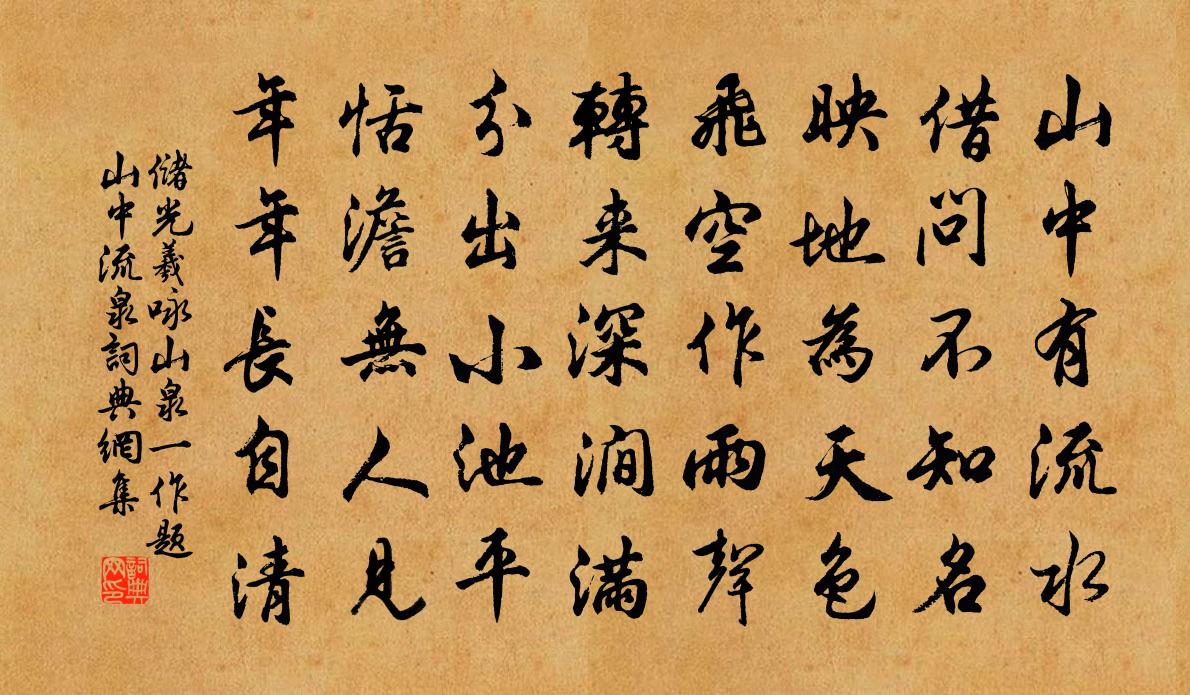 山中有流水
借問不知名
映地為天色
飛空作雨聲
轉来深澗滿
分出小池平
恬澹無人見
年年長自清
儲光羲咏山泉一作題
山中流泉詞典網集
詞典网印